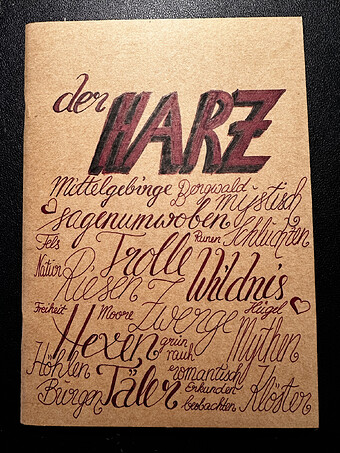 der
HARZ
Mittelgebirge Bergwald mystisch
sagenumwoben Ruinen Schluchten
Fels Trolle
Natur Riesen Wildnis
Freiheit Moore Zwerge Hügel
Hexen grün rauh Mythen
Höhlen romantisch
Burgen Täler Erkunden beobachten Klöster